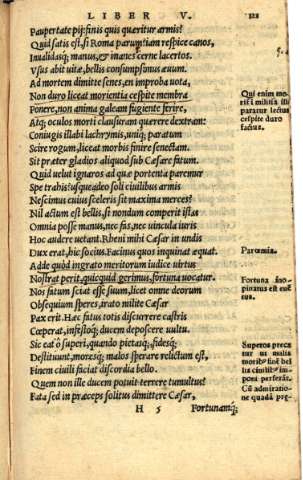 LIBER V. 121
Paupertate pijs: finis quis quæritur armis?
Quid satis est, si Roma parum: iam respice canos,
Inualidasq; manus, & inanes cerne lacertos.
Vsus abit uitæ, bellis consumpsimus æuum.
Ad mortem dimitte senes, en improba uota,
Non duro liceat morientia cespite membra
Ponere, non anima galeam fugiente ferire,
Atq; oculos morti clausuram quærere dextram:
Coniugis illabi lachrymis, uniq; paratum
Scire rogum, liceat morbis finire senectam.
Sit præter gladios aliquod sub Cæsare fatum.
Quid uelut ignaros ad quæ portenta paremur
Spe trahis? usqueadeo soli ciuilibus armis
Nescimus cuius sceleris sit maxima merces?
Nil actum est bellis, si nondum comperit istas
Omnia posse manus, nec fas, nec uincula iuris
Hoc audere uetant. Rheni mihi Cæsar in undis
Dux erat, hic socius. Facinus quos inquinat æquat.
Adde quòd ingrato meritorum iudice uirtus
Nostra perit. quicquid gerimus, fortuna uocatur.
Nos fatum sciat esse suum, licet omne deorum
Obsequium speres, irato milite Cæsar
Pax erit. Hæc fatus totis discurrere castris
Cœperat, infestoq; ducem deposcere uultu.
Sic eat ô superi, quando pietasq;, fidesq;
Destituunt, moresq; malos sperare relictum est,
Finem ciuili faciat discordia bello.
Quem non ille ducem potuit terrere tumultus?
Fata sed in præceps solitus dimittere Cæsar,
H 5 Fortunamq;
Qui enim me-
pararur lectus
cespite duro
factus.
Parœmia.
Fortuna
Superos